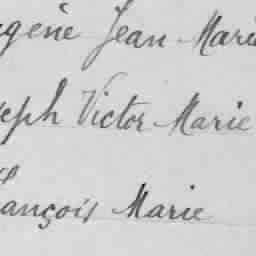 gène Jean Marie
seph Victor Marie
ançois Marie